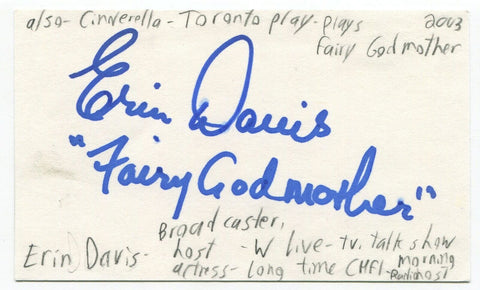 also- Cinderella- Toronto play- plays 2003
Fairy Godmother
Erin Davis
"Fairy Godmother"
Erin Davis- Broadcaster,
host - W live- tv. talk show
actress- long time CHFI- morning
Radio host